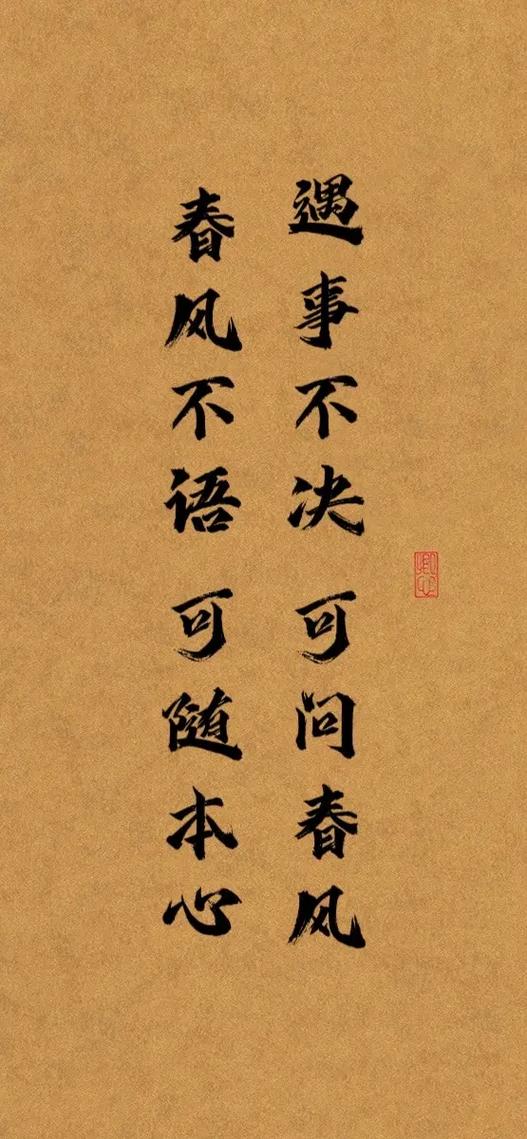 遇事不决 可问春风
春风不语 可随本心